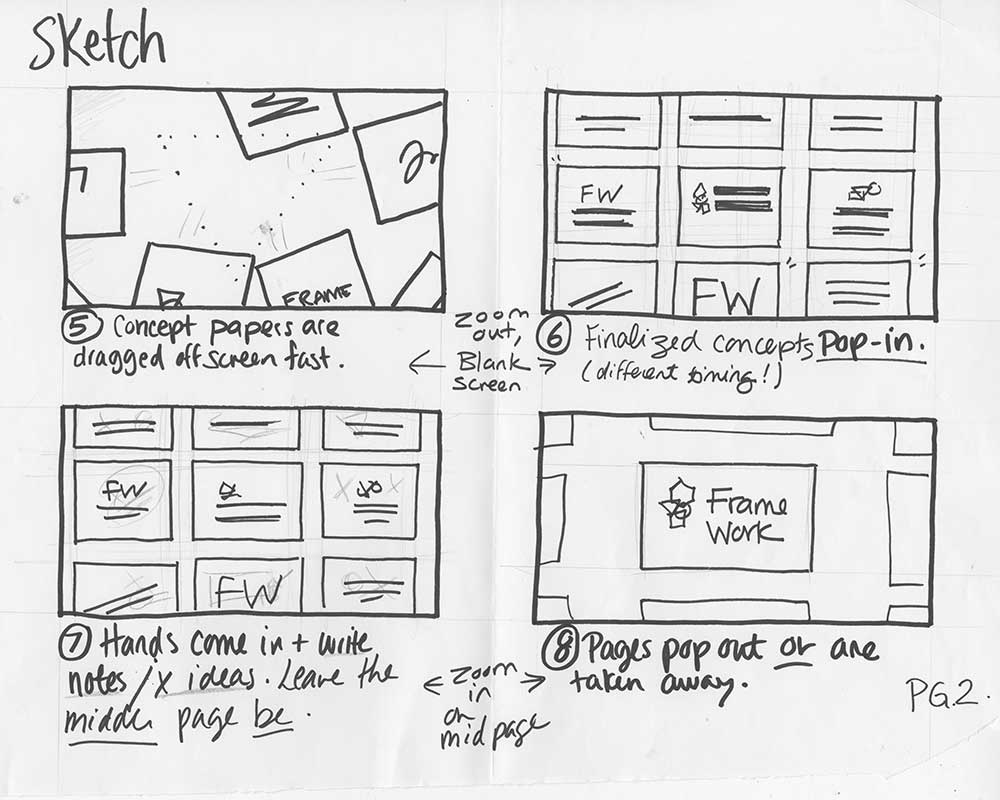 Sketch
FRAME
⑤ Concept papers are
dragged off screen fast.
zoom
out,
Blank
screen
FW
FW
⑥ Finalized concepts pop-in.
(different timing!)
FW
FW
⑦ Hands come in + write
notes/x ideas. Leave the
middle page be.
zoom
in
on
mid page
Frame
Work
⑧ Pages pop out or are
taken away.
PG.2